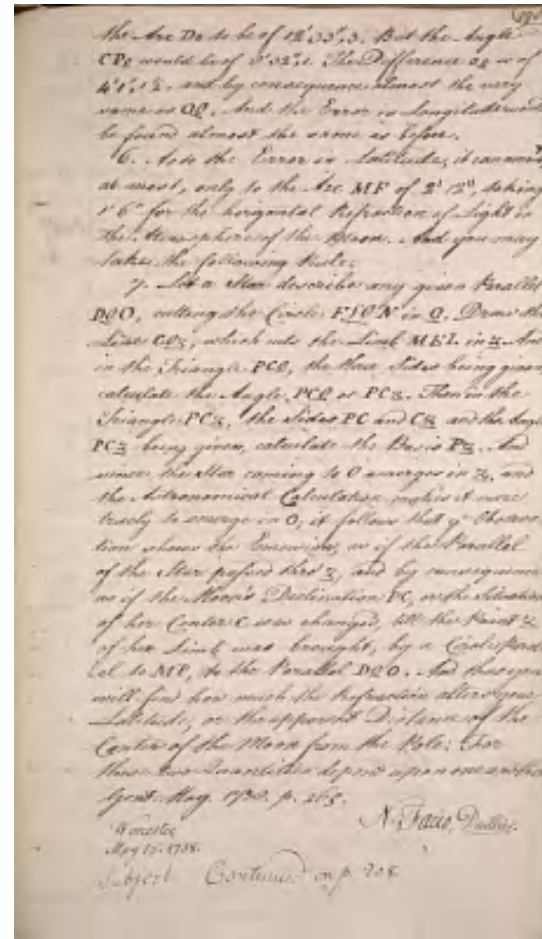 the Arc Do to be of 12' 33",3. But the Angle
CPQ would be of The Difference OQ is of
4' 1" 1/2, and by consequence almost the very
same as OQ. And the Error in Longitude would
be found almost the same as before.
6. As to the Error in Latitude, it can amount,
at most, only to the Arc MF of 2' 12", taking
1' 6" for the horizontal Refraction of Light in
the Atmosphere of the Moon. And you may
take the following Rule.
7. Let a Star describe any given Parallel
DQO, cutting the Circle FION in Q. Draw the
Line CQz, which cuts the Limb MEL in z. And
in the Triangle PCQ, the three Sides being given,
calculate the Angle PCQ or PCz. Then in the
Triangle PCz, the Sides PC and Cz and the Angle
PCz being given, calculate the Basis Pz. And
since the Star coming to O emerges in z, and
the Astronomical Calculation makes it more
truely to emerge in O; it follows that ye Observa-
tion shows the Emersion, as if the Parallel
of the Star passed thro' z, and by consequence
as if the Moon's Declination PC, or the Situation
of her Center C was changed, till the Point z
of her Limb was brought, by a Circle paral
el to MP, to the Parallel DQO. And thus you
will find how much the Refraction alters your
Latitude, or the apparent Distance of the
Center of the Moon from the Pole: For
these two Quantities depend upon one another.
Gent. Mag. 1738. p.
N. Facio, Duillier.
Worcester
May 15. 1738.
Subject Continued on p. 208